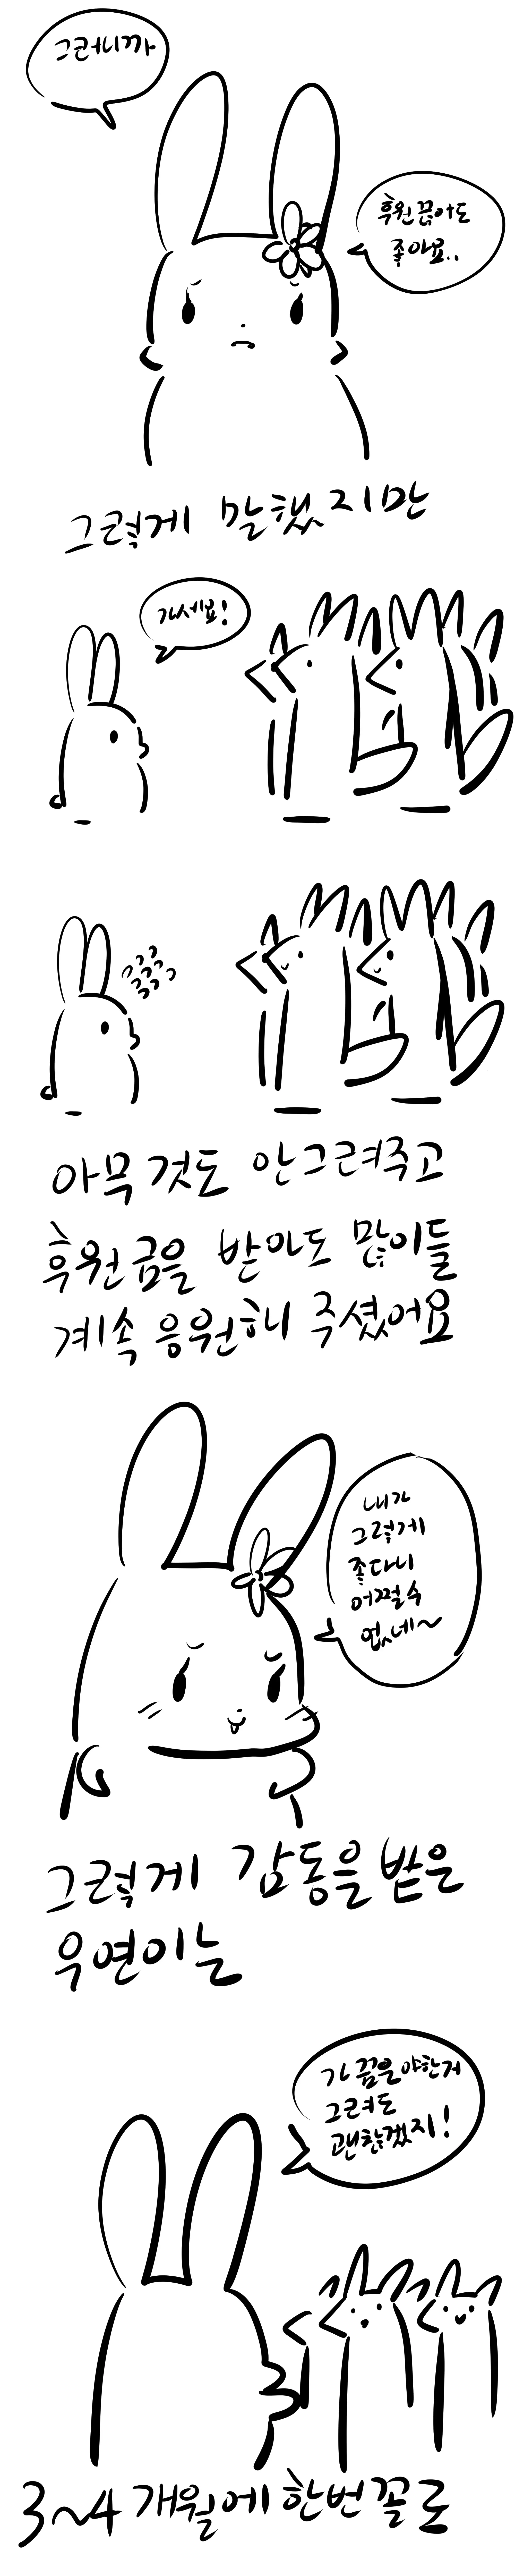 그러니까
후원 끊어도
좋아요..
그렇게 말했지만
가세요!
아무것도 안그려주고
후원금을 받아도 많이들
계속 응원해 주셨어요
내가
그렇게
좋다니
어쩔수
없네~
그렇게 감동을 받은
우연이는
가끔은 야한거
그려도
괜찮겠지!
3~4개월에 한번꼴로